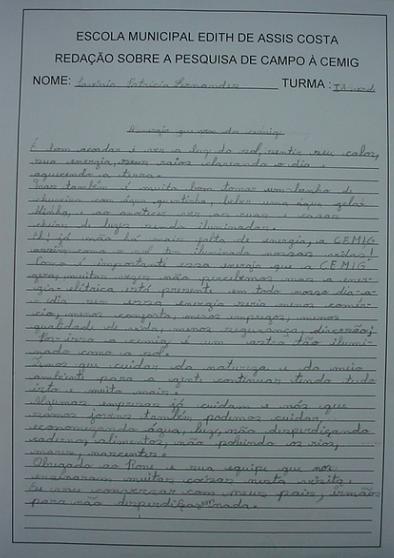 ESCOLA MUNICIPAL EDITH DE ASSIS COSTA
REDAÇÃO SOBRE A PESQUISA DE CAMPO À CEMIG
NOME: Patrícia Fernandes TURMA:
A energia que vem da cemig
É bom acordar e ver a luz do sol, sentir seu calor,
sua energia, seus raios clareando o dia e
aquecendo a terra.
Mas também é muito bom tomar um banho de
chuveiro com água quentinha, beber uma água gela-
dinha, e ao anoitecer ver as ruas e casas
cheias de luzes sendo iluminadas.
já não há mais falta de energia, a CEMIG
assim como o sol tem iluminado nossas vidas!
Como é importante essa energia que a CEMIG
gera, muitas vezes não percebemos mas a ener-
gia elétrica está presente em todo nosso dia-a-
e dia sem essa energia seria menos comér-
cio, menos conforto, menos empregos, menos
qualidade de vida, menos segurança, diversão;
Por isso a cemig é um astro tão ilumi-
nado como o sol.
Temos que cuidar da natureza e do meio
ambiente para a gente continuar tendo tudo
isto e muito mais.
Algumas empresas já cuidam e nós que
somos jovens também podemos cuidar,
economizando água, luz, não desperdiçando
caderno, alimentos, não poluindo os rios,
mares, nascentes.
Obrigada ao Rone e sua equipe que nos
ensinaram muitas coisas nesta visita.
Eu vou conversar com meus pais, irmãos
para não desperdiçarem nada.